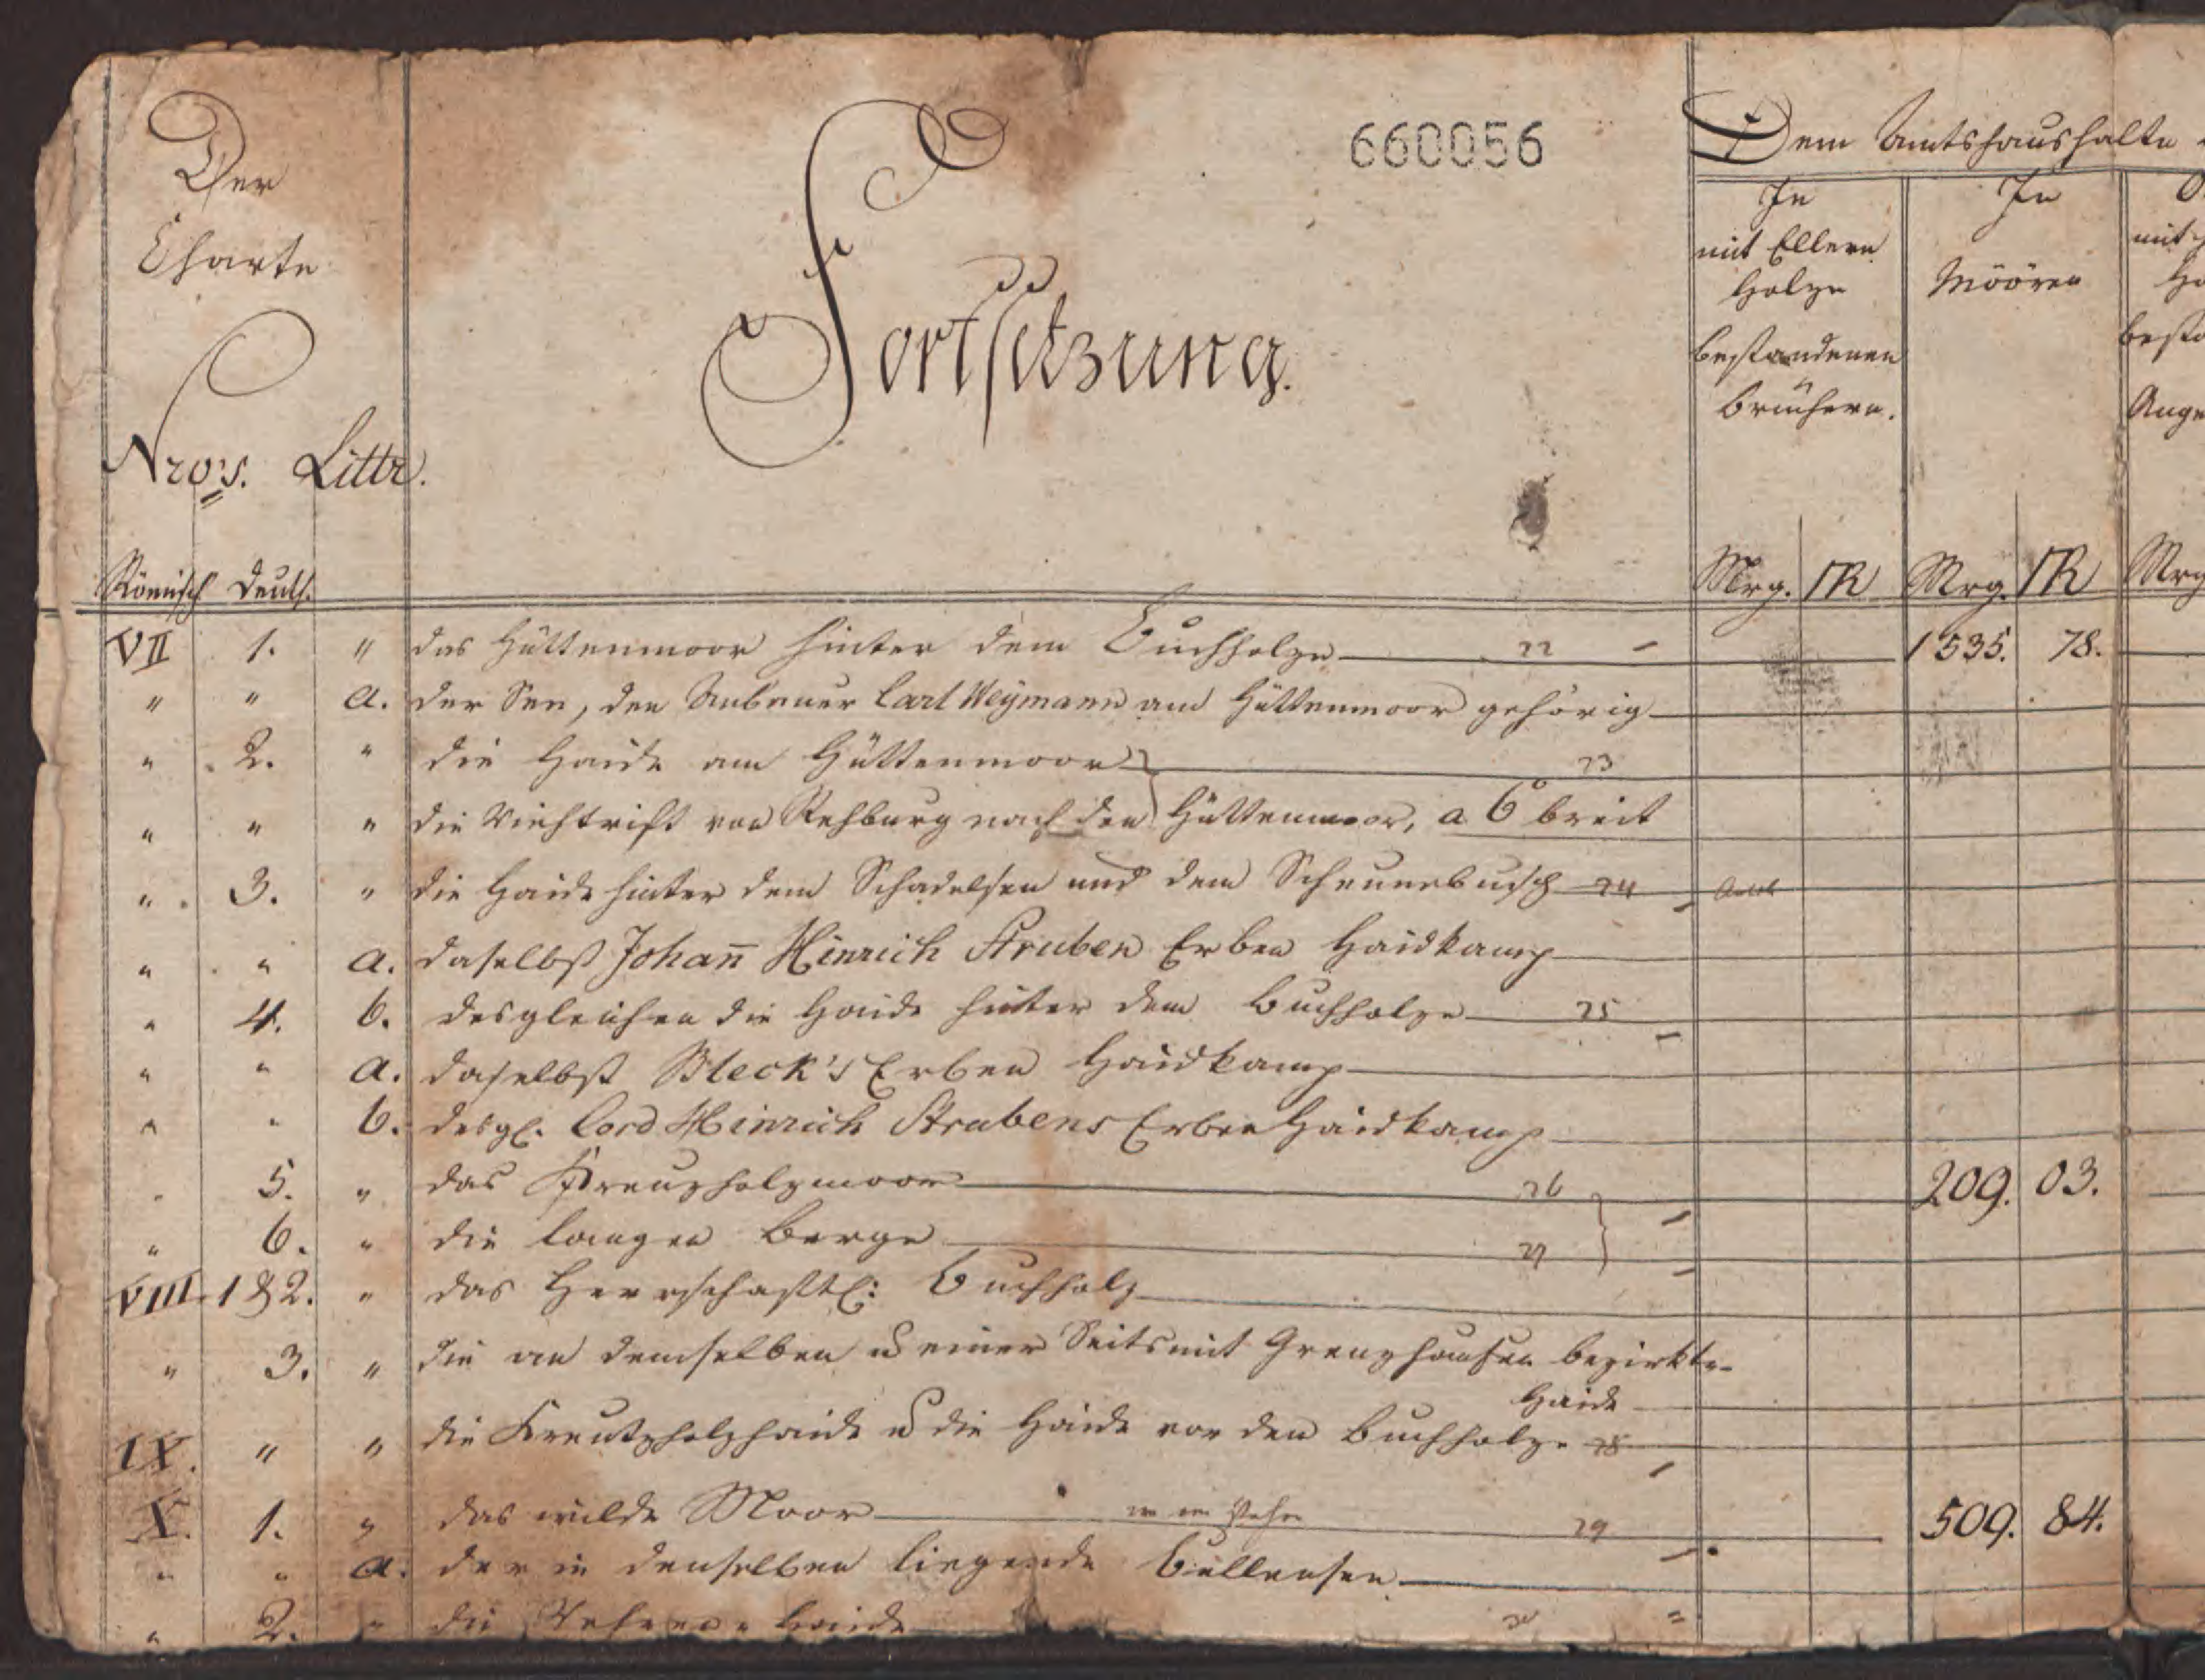 Der
Charte
Nro's. Littr.
Römisch Deutsch.
Fortsetzung.
660056
Dem Amtshaushalte
In
mit Ellern
Holze
bestandenen
Brüchern.
In
Möören
mit
Ho
besta
Ange
Mrg. R Mrg. R Mrg
VII 1. " das Hüttenmoor hinter dem Buchholze 22 1535. 78.
" " a. der See, den Anbauer Carl Weymann am Hüttenmoor gehörig
" 2. " die Haide am Hüttenmoor 23
" " " die Viehtrift von Rehburg nach den Hüttenmoor, a 6° breit
" 3. " die Haide hinter dem Schadelsen und dem Scheunebusch 24
" " a. daselbst Johan̄ Hinrich Struben Erben Haidkamp
" 4. b. desgleichen die Haide hinter dem Buchholze 25
" " a. daselbst Bleck's Erben Haidkamp
" " b. desgl. Cord Hinrich Strubens Erben Haidkamp
" 5. " das Kreuzholzmoor 26 209. 03.
" 6. " die langen Berge 27
VIII 1 & 2. " das Herrschaftl: Buchholz
" 3. " die an demselben u einer Seits mit Grenzhaufen bezirkte
Haide
IX. " " die Kreutzholzhaide u die Haide vor den Buchholze 28
X. 1. " das wilde Moor 29 509. 84.
" " a. der in denselben liegende Bullensee
" 2. " die Haide